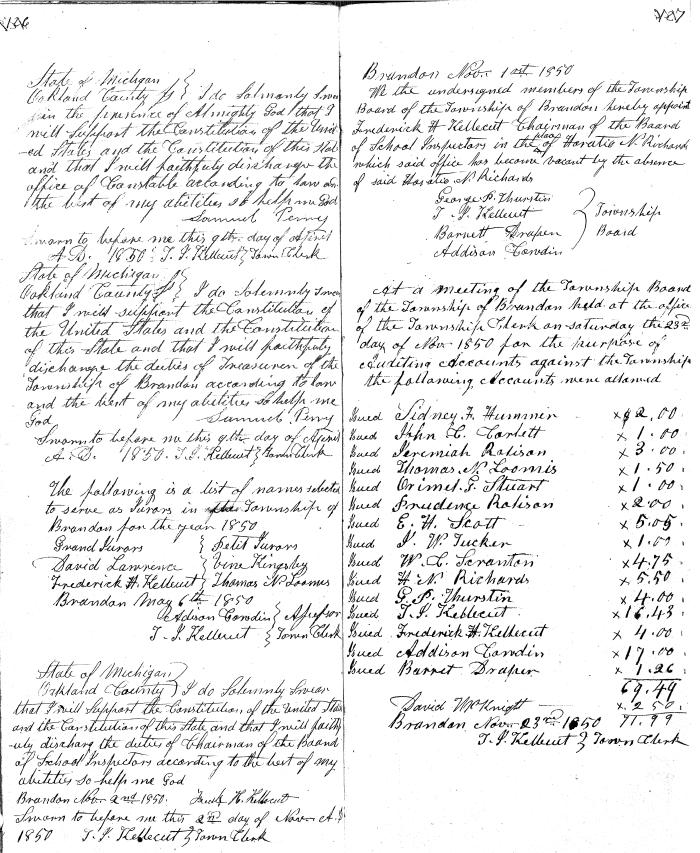 126
State of Michigan }
Oakland County SS } I do Solmanly Swear
in the presence of Almighty God that I
will Support the Constitution of the Unit
-ed States and the Constitution of this State
and that I will faithfully discharge the
office of Constable according to law and
the best of my abilities so help me God
Samuel Perry
Sworn to before me this 9th day of April
A.D. 1850 T. I. Kellicut } Town Clerk
State of Michigan }
Oakland County SS } I do Solemnly Swear
that I will support the Constitution of
the United States and the Constitution
of this State and that I will faithfully
discharge the duties of Treasurer of the
Township of Brandon according to law
and the best of my abilities so help me
God Samuel Perry
Sworn to before me this 9th day of April
A.D. 1850. T. I. Kellicut } Town Clerk
The following is a list of names selected
to serve as Jurors in Township of
Brandon for the year 1850
Grand Jurors } Petit Jurors
David Lawrence } Vine Kingsley
Frederick H. Kellicut } Thomas N. Loomis
Brandon May 6th 1850
Addison Cowdin } Assessor
T. I. Kellicut } Town Clerk
State of Michigan }
Oakland County } I do Solemnly Swear
that I will Support the Constitution of the United States
and the Constitution of this State and that I will faithf
-uly discharg the duties of Chairman of the Board
of School Inspectors according to the best of my
abilities so help me God
Brandon Nov. 2nd 1850. H. Kellicut
Sworn to before me this 2nd day of Nov. A.D
1850 T. I. Kellicut } Town Clerk
127
Brandon Nov. 1st 1850
We the undersigned members of the Township
Board of the Township of Brandon hereby appoint
Frederick H Kellicut Chairman of the Board
of School Inspectors in the place of Horatio N. Richards
which said office has become vacant by the absence
of said Horatio N Richards
George P. Thurstin
T. I. Kellicut } Township
Barnett Draper } Board
Addison Cowdin
At a meeting of the Township Board
of the Township of Brandon held at the office
of the Township Clerk on saturday the 23rd
day of Nov. 1850 for the purpose of
Auditing Accounts against the Township
the following Accounts were allowed
Isued Sidney F. Hummer x $2.00
Isued John C. Corbett x 1.00
Isued Jeremiah Ralison x 3.00
Isued Thomas N. Loomis x 1.50
Isued Orimel G. Stuart x 1.00
Isued Prudence Ralison x 2.00
Isued E. H. Scott x 5.05
Isued W. Tucker x 1.00
Isued W. C. Scranton x 4.75
Isued H N. Richards x 5.50
Isued G. P. Thurstin x 4.00
Isued T. I. Kellicut x 16.43
Isued Frederick H. Kellicut x 4.00
Isued Addison Cowdin x 17.00
Isued Barret Draper x 1.26
69.49
David McKnight x 2.50
Brandon Nov. 23rd 1850 71.99
T. I. Kellicut } Town Clerk